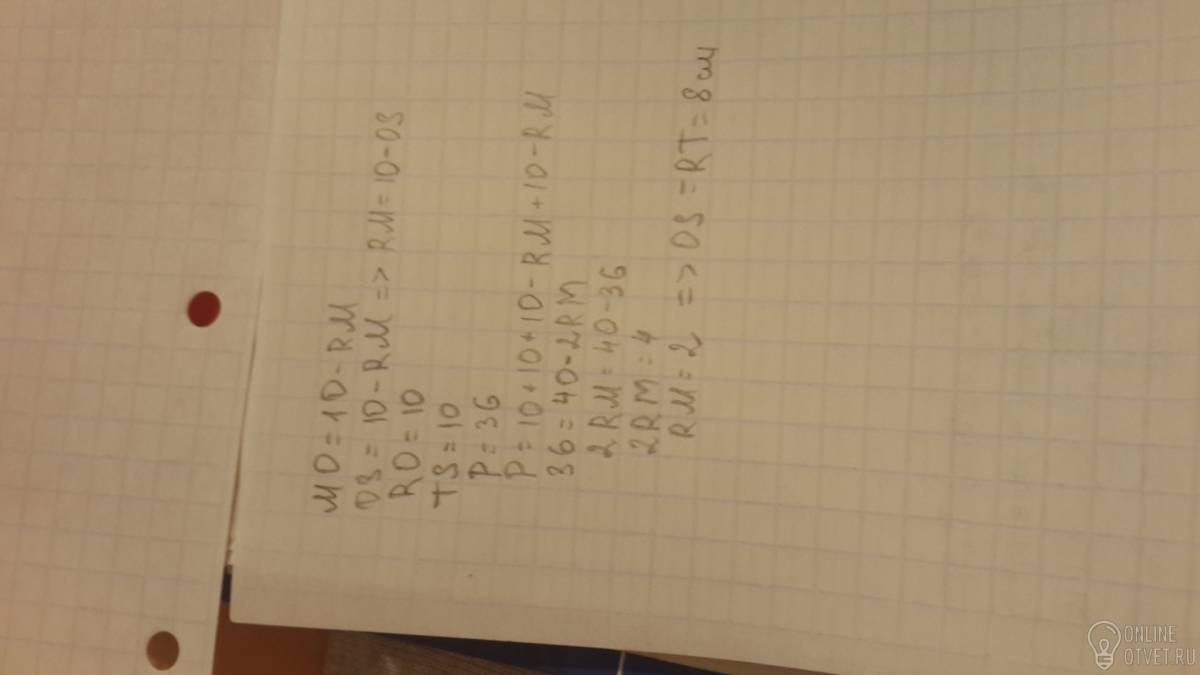 MO = 10 - RM
OS = 10 - RM => RM = 10 - OS
RO = 10
TS = 10
P = 36
P = 10 + 10 + 10 - RM + 10 - RM
36 = 40 - 2RM
2RM = 40 - 36
2RM = 4
RM = 2 => OS = RT = 8 см
ONLINE
OTVET.RU